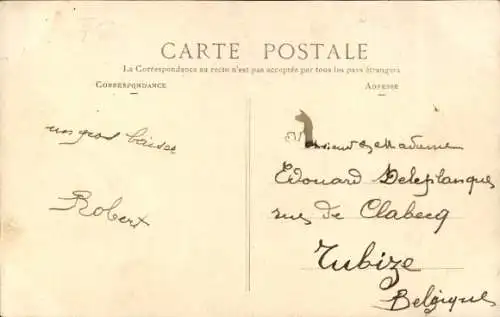 CARTE POSTALE
La Correspondance au recto n'est pas acceptée par tous les pays étrangers
CORRESPONDANCE
ADRESSE
un gros baiser
Robert
Monsieur et Madame
Edouard Deleplanque
rue de Clabecq
Tubize
Belgique